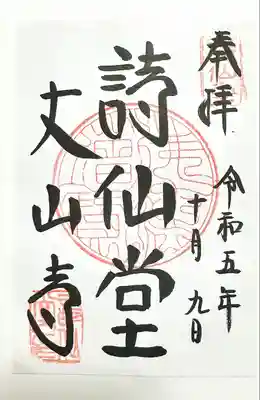 奉拝
令和五年
十月九日
詩仙堂
丈山寺